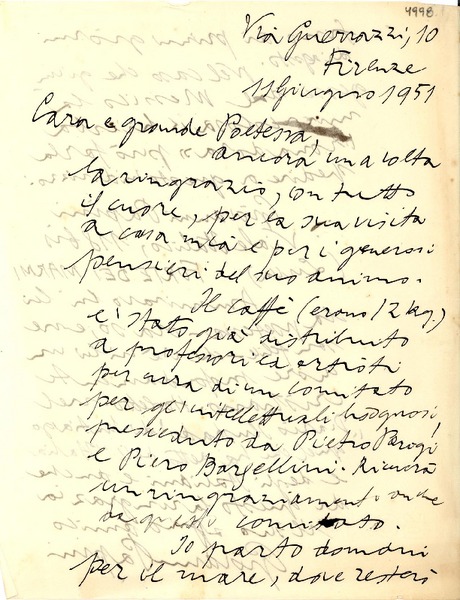 4998
Via Guerrazzi, 10
Firenze
11 Giugno 1951
Cara e grande Poetessa,
ancora una volta
la ringrazio, con tutto
il cuore, per la sua visita
a casa mia e per i generosi
pensieri del suo animo.
Il caffè (erano 12 kg.)
e' stato già distribuito
a professori ed artisti
per cura di un comitato
per gl'intellettuali bisognosi,
presieduto da Pietro Parigi
e Piero Bargellini. Riceverà
un ringraziamento anche
da questo comitato.
Io parto domani
per il mare, dove resterò